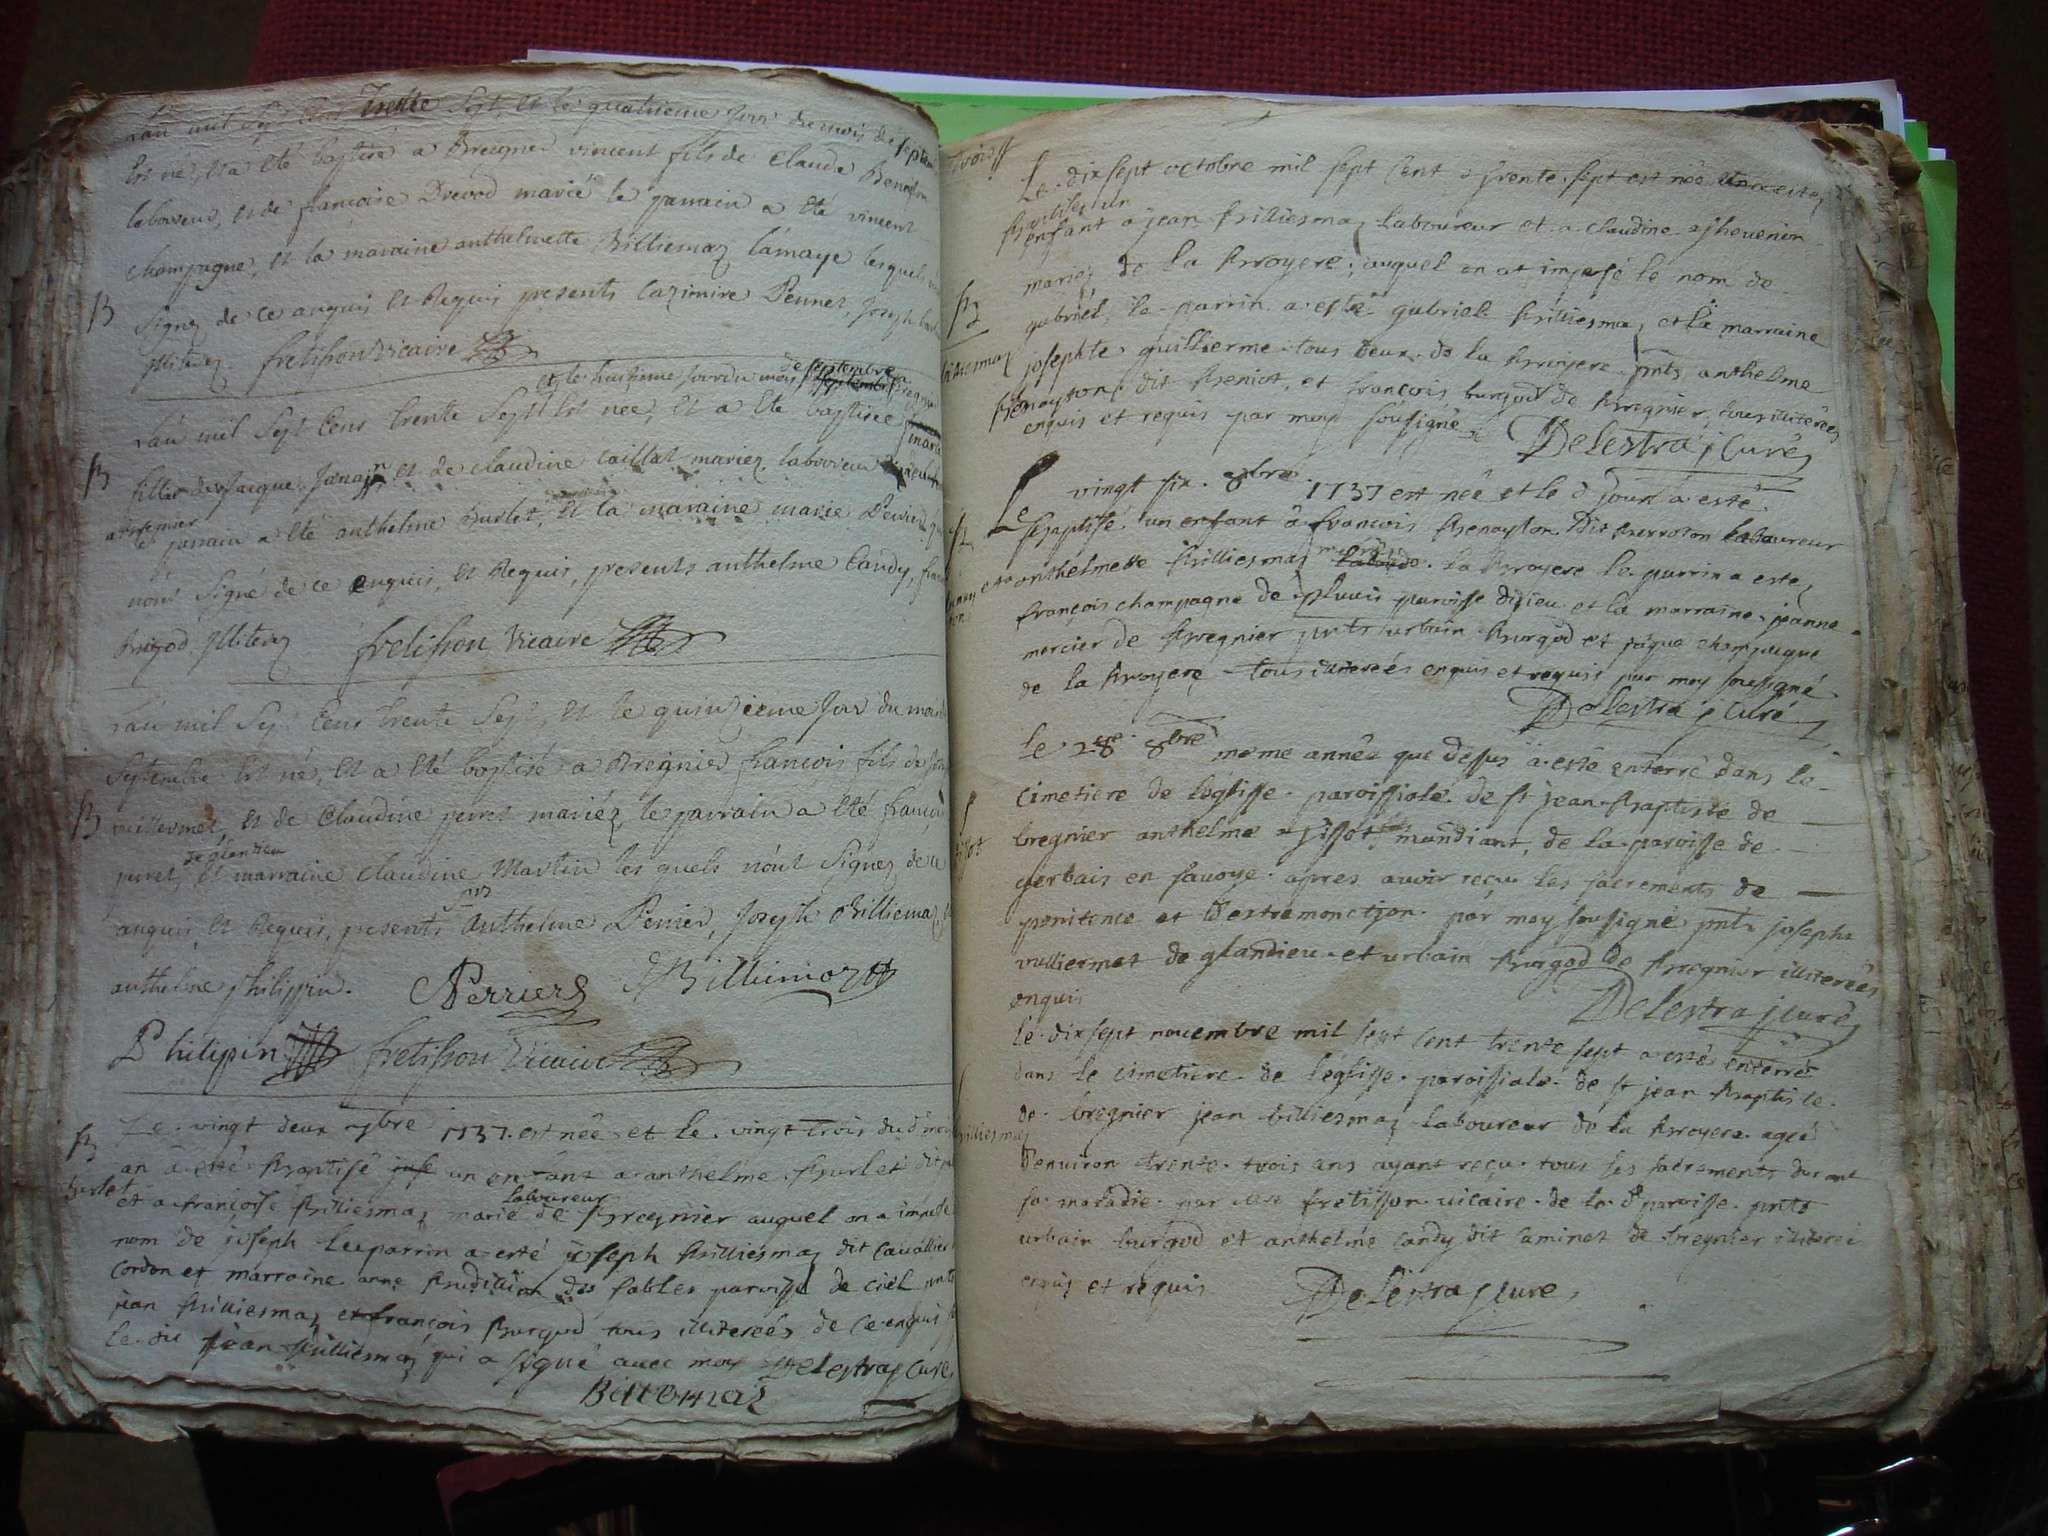 L'an mil sept cens trente sept, et le quatrieme jour du mois de septem
est né, et a été baptisé a Breignier vincent fils de Claude Benoiston
laboureur, et de francoise Drevod mariés le parrain a été vincent
champagne, et la maraine anthelmette Billiemaz lesquels
B
signez de ce enquis et Requis presents Cazimire Pennet, Joseph
illiterez. frelisson Vicaire
et le huitieme jour du mois de septembre
L'an mil sept cens trente sept est née, et a été baptisée
B
fille de Jacque et de claudine taillat mariez, laboureur
a bregnier
le parrain a été anthelme Burlet, et la maraine marie
n'ont signé de ce enquis, et Requis, presents anthelme Candy,
Brigod, illiterez frelisson Vicaire
L'an mil sept cens trente sept, et le quinzieme jour du mois
Septembre est né, et a été baptisé a Bregnier francois fils de
B vuillermet, et de Claudine perret mariéz, le parrain a été francois
de glandieu
perret, et marraine claudine Martin les quels n'ont signez de ce
enquis, et Requis, presents anthelme Perrier, Joseph Billiemaz, et
anthelme philippin. APerrier JBilliemaz
Philippin frelisson Vicaire
Le vingt deux 7bre 1737 est née et le vingt trois du d mois
B
an a esté Baptisé un enfant a anthelme Burlet dit
Burlet
laboureur
et a françoise Billiesmaz mariés de Bregnier auquel on a imposé
nom de joseph le parrin a esté joseph Billiesmaz dit Cavallier
Cordon et marraine anne des sables paroisse de ciel pnts
jean Billiesmaz et françois Burgod tous illiterées de ce enquis
le dit jean Billiesmaz qui a signé avec moy Delestraz Curé
Billiemaz
Le dix sept octobre mil sept cent trente sept est née et a esté
Baptisé un
enfant a jean Billiesmaz laboureur et a claudine thevenin
mariez de la Bruyere, auquel on at imposé le nom de
B
gabriel, le parrin a esté gabriel Billiesmaz et la marraine
josephte guillerme tous deux de la Bruyere pnts anthelme
Benoyston dit Beniot, et François burgod de Bregnier tous illiterées
enquis et requis par moy soussigné Delestraz Curé
Le vingt six 8bre 1737 est née et le d jour a esté
B
Baptisé un enfant a françois Benoyston dit laboureur
mariés
anthelmette Billiesmaz la Bruyere le parrin a esté
françois champagne de pluvis paroisse disieu et la marraine jeanne
mercier de Bregnier pnts urbain Burgod et champagne
de la Bruyere tous illiterées enquis et requis par moy soussigné
Delestraz Curé
Le 28 8bre meme année que dessus a esté enterré dans le
cimetiere de l'eglisse paroissiale de st jean Baptiste de
bregnier anthelme tissot mandiant, de la paroisse de
gerbais en savoye apres avoir reçu les sacrements de
penitence et d'estremonction par moy soussigné pnts joseph
vulliermet de glandieu et urbain Burgod de Bregnier illiterées
enquis Delestraz Curé
le dix sept novembre mil sept cent trente sept a esté enterré
dans le cimetiere de l'eglisse paroissiale de st jean Baptiste
de bregnier jean billiesmaz laboureur de la Bruyere agée
d'environ trente trois ans ayant reçu tous les sacrements durant
sa maladie par mre frelisson vicaire de la d paroisse pnts
urbain burgod et anthelme candy dit caminet de bregnier illiterei
enquis et requis Delestraz Curé